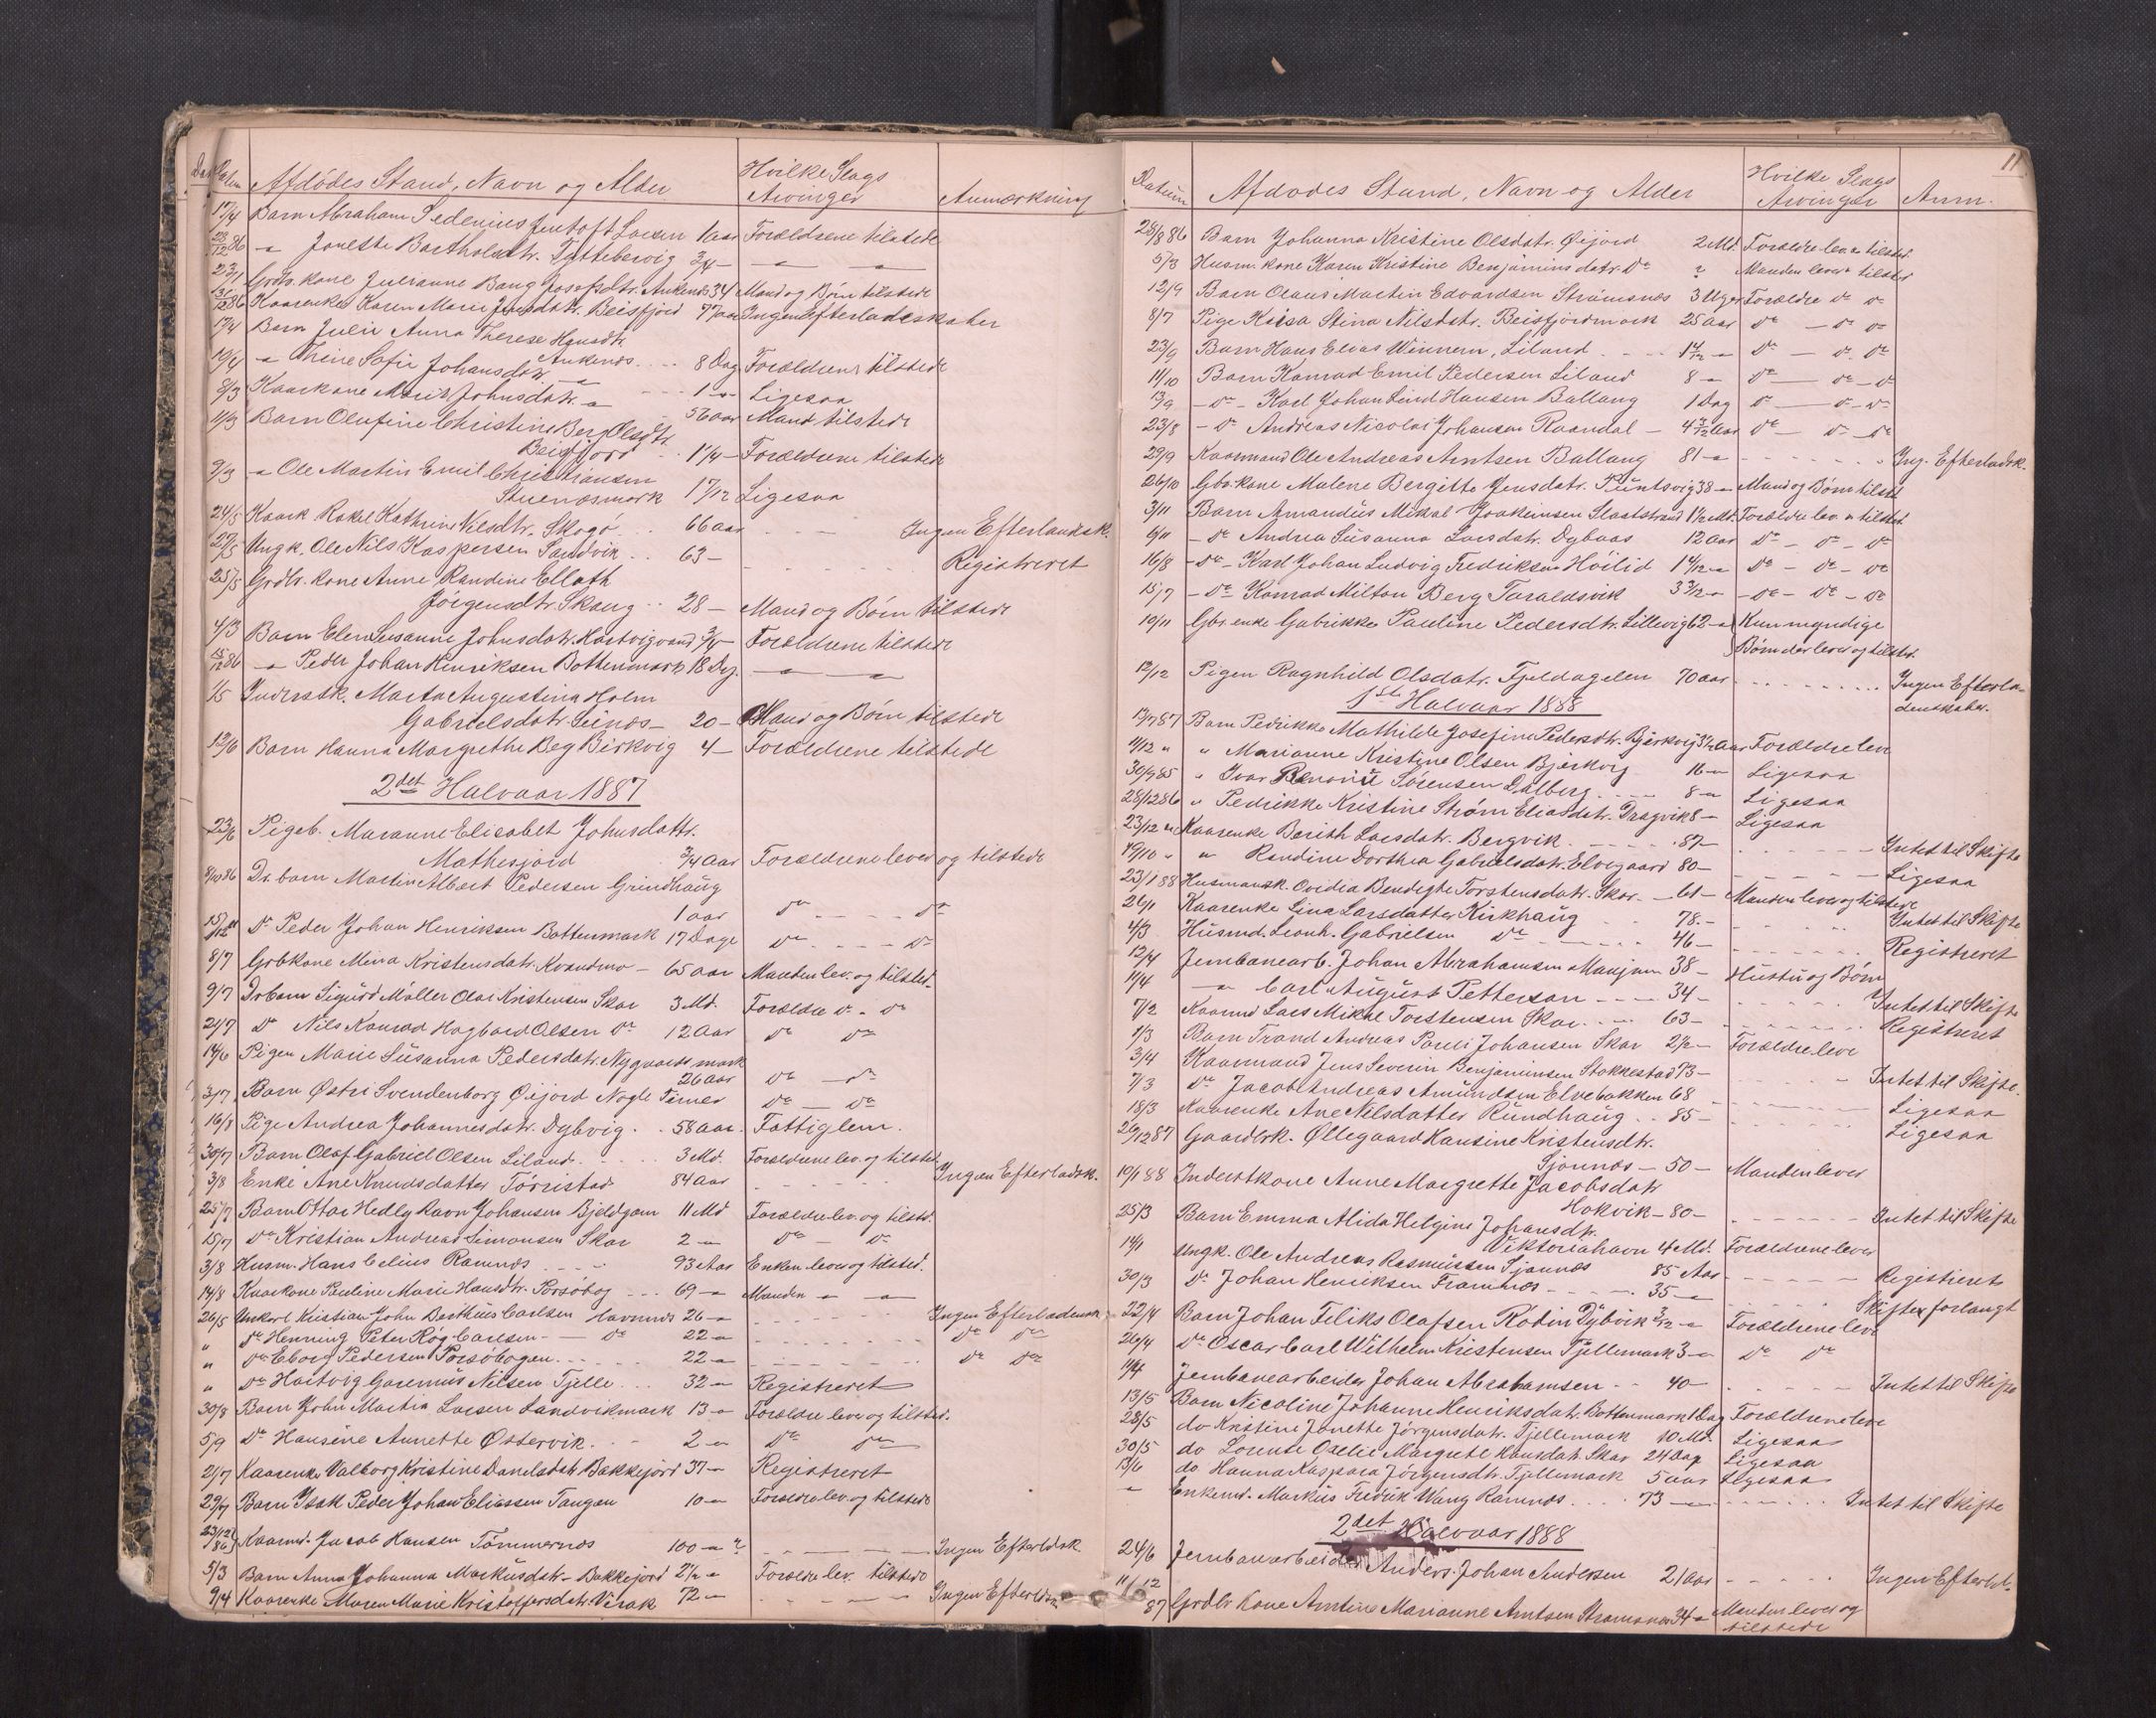 Datum Afdödes Stand, Navn og Alder Hvilke Slags Arvinger Anmærkning
17/4 Barn Abraham Sedenius Jentoft Larsen 1 aar Forældrene tilstede
23/12 86 " Jonette Bartholdtr. Tyttebervig 3/4 — " "
23/1 Grdbr. kone Julianne Bang Josefsdtr. Ankenes 34 Mand og Börn tilstede
31/12 86 Kaarenke Karen Marie Jensdatr. Beisfjord 77 aar Ingen Efterladeskaber
17/4 Barn Julie Anna Therese Hansdtr.
Ankenes 8 Dag Forældrene tilstede
10/4 " Trine Sofie Johansdatr. " 1 " Ligesaa
8/3 Kaarkone Maria Johnsdatr. " 56 aar Mand tilstede
11/3 Barn Olufine Christine Berg Olsdtr.
Beisfjord 1 1/4 — Forældrene tilstede
9/3 " Ole Martin Emil Christiansen
Stuenæsmark 1 7/12 Ligesaa
24/5 Kaark. Rakel Kathrine Nilsdtr. Skogö 66 aar Ingen Efterladsk.
27/5 Ungk. Ole Nils Kaspersen Sandvik 63 — Registreret
25/5 Grdbr. kone Anne Randine Ellath
Jörgensdtr. Skaug 28 — Mand og Börn tilstede
4/3 Barn Elen Susanne Johnsdatr. Hartvigvand 3/4 — Forældrene tilstede
15/12 86 " Peder Johan Henriksen Bottenmark 18 Dg. " "
1/5 Inderstk. Marta Augustina Holm
Gabrielsdatr. Seines 20 — Mand og Börn tilstede
12/6 Barn Hanna Margrethe Beg Birkvig 4 — Forældrene tilstede
2det Halvaar 1887
23/6 Pigeb. Maranne Elisabet Johnsdattr.
Mathesjord 3/4 Aar Forældrene lever og tilstede
8/10 86 Dr. barn Martin Albert Pedersen Grindhaug
1 aar Do Do
15/12 " Do Peder Johan Henriksen Bottenmark 17 Dage Do Do
8/7 Grbkone Mina Kristensdatr. Kvandmo — 65 aar Manden lev. og tilsted.
9/7 Dr barn Sigurd Möller Olai Kristensen Skar 3 Md. Forældre do do
21/7 Do Nils Konrad Hagbard Olsen Do 12 Aar Do Do
14/6 Pigen Marie Susanna Pedersdatr. Nygaardsmark
26 aar Do — Do
3/7 Barn Østri Svendenborg Øijord Nogle Timer Do — Do
16/8 Pige Andrea Johannesdatr. Dybvig 58 aar. Fattiglem.
30/7 Barn Olaf Gabriel Olsen Liland 3 Md. Forældrene lev. og tilsted
3/8 Enke Ane Knudsdatter Törrestad 84 aar Ingen Efterladsk.
25/7 Barn Ottar Hedley Ravn Johansen Bjeldgam 11 Md Forældre lev. og tilsted.
15/7 Do Kristian Andreas Simonsen Skar 2 — Do — Do
3/8 Husm. Hans Celius Ramnes 93 Aar Enken lever og tilsted.
14/8 Kaarkone Pauline Marie Hansdtr. Porsöbog 69 " Manden " "
26/5 Unkarl Kristian John Berthius Carlsen Havnnes 26 " Ingen Efterladensk
" Do Henning Peter Røg Carlsen — Do 22 " Do Do
" Do Eborg Pedersen Porsöbogen 22 " Do Do
" Do Hartvig Garenius Nilsen Tjelle 32 " Registreret
30/8 Barn John Martin Larsen Sandvikmark 13 " Forældre lever og tilsted.
5/9 Do Hansine Annette Østervik 2 " Do Do
21/7 Kaarenke Valborg Kristine Danelsdatr. Bakkejord 37 " Registreret
29/7 Barn Isak Peder Johan Eliassen Tangen 10 " Forældre lev. og tilstede
23/12 86 Kaarmd. Jacob Hansen Tömmernes 100 " ? Ingen Efterldsk.
5/3 Barn Anna Johanna Markusdatr. Bakkejord 2 1/2 " Forældre lev. tilstede
9/4 Kaarenke Maren Marie Kristoffersdatr. Virak 72 " Ingen Efterldsk
11
Datum Afdødes Stand, Navn og Alder Hvilke Slags Arvinger Anm.
28/8 86 Barn Johanna Kristine Olsdatr. Øijord 2 Md. Forældre lev. " tilsted.
5/8 Husm. kone Karen Kristine Benjaminsdatr. Do ? Manden lever " tilsted
12/9 Barn Olaus Martin Edvardsen Strömsnes 3 Uger Forældre do do
8/7 Pige Kaisa Stina Nilsdtr. Beisfjordmark 25 Aar Do — Do
23/9 Barn Hans Elias Winnem, Liland 1 4/12 " Do — Do Do
11/10 Barn Konrad Emil Pedersen Liland 8 " Do — Do — Do
13/9 — Do — Karl Johan Lind Hansen Ballang 1 Dag Do — Do — Do
23/8 — Do Andreas Nicolai Johansen Raandal — 4 3/12 Aar Do — Do — Do
29/9 Kaarmand Ole Andreas Arntsen Ballang 81 " Ing. Efterladsk.
26/10 Gbr.kone Malene Bergitte Jensdatr. Pundsvig 38 " Mand og Börn tilsted
3/11 Barn Amandus Mikal Joakimsen Slaatstrand 1 1/2 Md. Forældre lev. " tilsted.
6/11 — Do Andrea Susanna Larsdatr. Dybaas 12 Aar Do — Do — Do
16/8 — Do — Karl Johan Ludvig Fredriksen Höilid 1 4/12 " Do — Do — Do
15/7 — Do Konrad Milton Berg Taraldsvik 3 3/12 " — Do — Do — Do
10/11 Gbr. enke Gabrikke Pauline Pedersdtr. Lillevig 62 " Kun myndige
Börn der lever og tilsted.
12/12 Pigen Ragnhild Olsdatr. Fjeldagelen 70 aar Ingen Efterla-
denskaber.
1ste Halvaar 1888
13/7 87 Barn Pedrikke Mathilde Josefine Pedersdtr. Bjerkvig 3 1/2 Aar Forældre leve
11/12 " " Marianne Kristine Olsen Bjerkvig 16 " Ligesaa
30/9 85 " Ivar Renoni Sörensen Dalberg 8 " Ligesaa
28/12 86 " Pedrikke Kristine Strøm Eliasdatr. Dragvik 8 — Ligesaa
23/12 " Kaarenke Berith Larsdatr. Bergvik 87 — Intet til Skifte
19/10 " " Randine Dorthea Gabrielsdatr. Elvegaard 80 — Ligesaa
23/1 88 Husmansk. Ovidia Bendigte Torstensdatr. Skar — 61 — Manden lever og tilstede
26/1 Kaarenke Lina Larsdatter Kirkhaug 78. — Intet til Skifte
4/3 Husmd. Leonh. Gabrielsen Do 46 — Registreret
12/4 Jernbanearb. Johan Abrahamsen 38 — Hustru og Börn
11/4 " Carl August Petterson 34 — Intet til Skifte
7/2 Kaarmd Lars Mikal Torstensen Skar 63 — Registreret
1/3 Barn Trand Andreas Pauli Johansen Skar 2 1/2 — Forældre leve
3/4 Kaarmand Jens Severin Benjaminsen Stokkestad 73 — Intet til Skifte.
7/3 Do Jacob Andreas Amundsen Elvebakken 68 Ligesaa
18/3 Kaarenke Ane Nilsdatter Rundhaug 85 — Ligesaa
26/12 87 Gaardbrk. Øllegaard Hansine Kristensdtr.
Sjonnes — 50 — Manden lever
10/1 88 Inderstkone Anne Margrette Jacobsdatr
Hokvik — 80 — Intet til Skifte
25/3 Barn Emma Alida Helgine Johansdtr.
Viktoriahavn 4 Md. Forældrene lever
14/1 Ungk. Ole Andreas Rasmussen Sjonnes 85 Aar Registreret
30/3 Do Johan Henriksen Framnes 35 " Skifte forlangt
22/4 Barn Johan Feliks Olafsen Rödin Dybvik 3/12 " Forældrene leve
26/4 Do Oscar Carl Wilhelm Kristensen Tjellemark 3 " Do Do
1/4 Jernbanearbeider Johan Abrahamsen 40 — Intet til Skifte
13/5 Barn Nicoline Johanne Henriksdatr. Bottenmark 1 Dag Forældrene leve
28/5 do Kristine Jonette Jörgensdatr. Tjellemark 10 Md. Ligesaa
30/5 do Lorense Ozelie Margrete Hansdatr. Skar 24 Dag Ligesaa
13/6 do Hanna Kaspara Jörgensdtr. Tjellemark 5 aar Ligesaa
" Enkemd. Markus Fredrik Wang Ramnes 73 — Intet til Skifte
2det Halvaar 1888
24/6 Jernbanarbeider Anders Johan Andersen 21 Aar Ingen Efterld.
11/12 87 Grdbr Kone Arntine Marianne Arntsen Stramsnes 34 " Manden lever og
tilstede